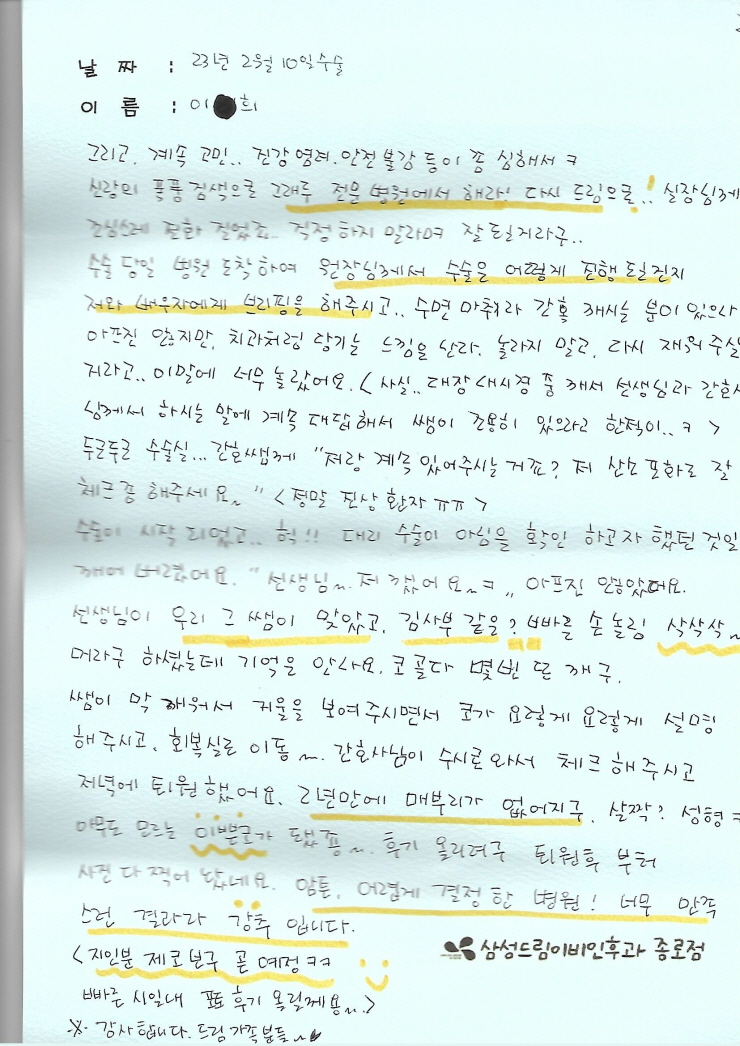 날 짜 : 23년 2월 10일수술
이 름 : 이 희
그리고, 계속 고민.. 건강염려. 안전불감 등이 쫌 심해서 ㅋ
신랑의 폭풍검색으로 그래두 전문병원에서 해라! 다시 드림으로..! 실장님께
조심스레 전화 걸었죠.. 걱정하지 말라며 잘 될거라구..
수술 당일 병원 도착하여 원장님께서 수술은 어떻게 진행될건지
저와 배우자에게 브리핑을 해주시고.. 수면 마취라 간혹 깨시는 분이 있으나
아프진 않지만, 치과처럼 땅기는 느낌은 난라. 놀라지 말고, 다시 재워주실
거라고.. 이말에 너무 놀랐어요. < 사실.. 대장내시경 중 깨서 선생님과 간호사
님께서 하시는 말에 계속 대답해서 쌤이 조용히 있으라고 한적이.. ㅋ >
두근두근 수술실... 간호쌤께 "저랑 계속 있어주시는 거죠? 저 산소포화도 잘
체크 좀 해주세요~" < 정말 진상 환자 ㅠㅠ >
수술이 시작 되었고.. 헉!! 대리 수술이 아님을 확인 하고자 했던 것일
깨어 버렸어요. "선생님~ 저 깼어요~ㅋ" 아프진 않았어요.
선생님이 우리 그 쌤이 맞았고, 김사부 같은? 빠른 손놀림 삭삭삭~
머라구 하셨는데 기억은 안나요. 코골다 몇번 또 깨구.
쌤이 막 깨워서 거울을 보여주시면서 코가 요렇게 요렇게 설명
해주시고, 회복실로 이동~. 간호사님이 수시로 와서 체크해주시고
저녁에 퇴원했어요. 21년만에 매부리가 없어지구, 살짝? 성형ㅋ
아무도 모르는 이쁜코가 됐죵~. 후기 올리려구 퇴원후 부터
사진 다 찍어 놨네요. 암튼, 어렵게 결정한 병원! 너무 만족
스런 결과라 강추 입니다.
< 지인분 제로본구 곧 예정 ㅋㅋ
삼성드림이비인후과 종로점
빠른 시일내 후기 올릴께용~.>
※. 감사합니다. 드림가족분들~♥